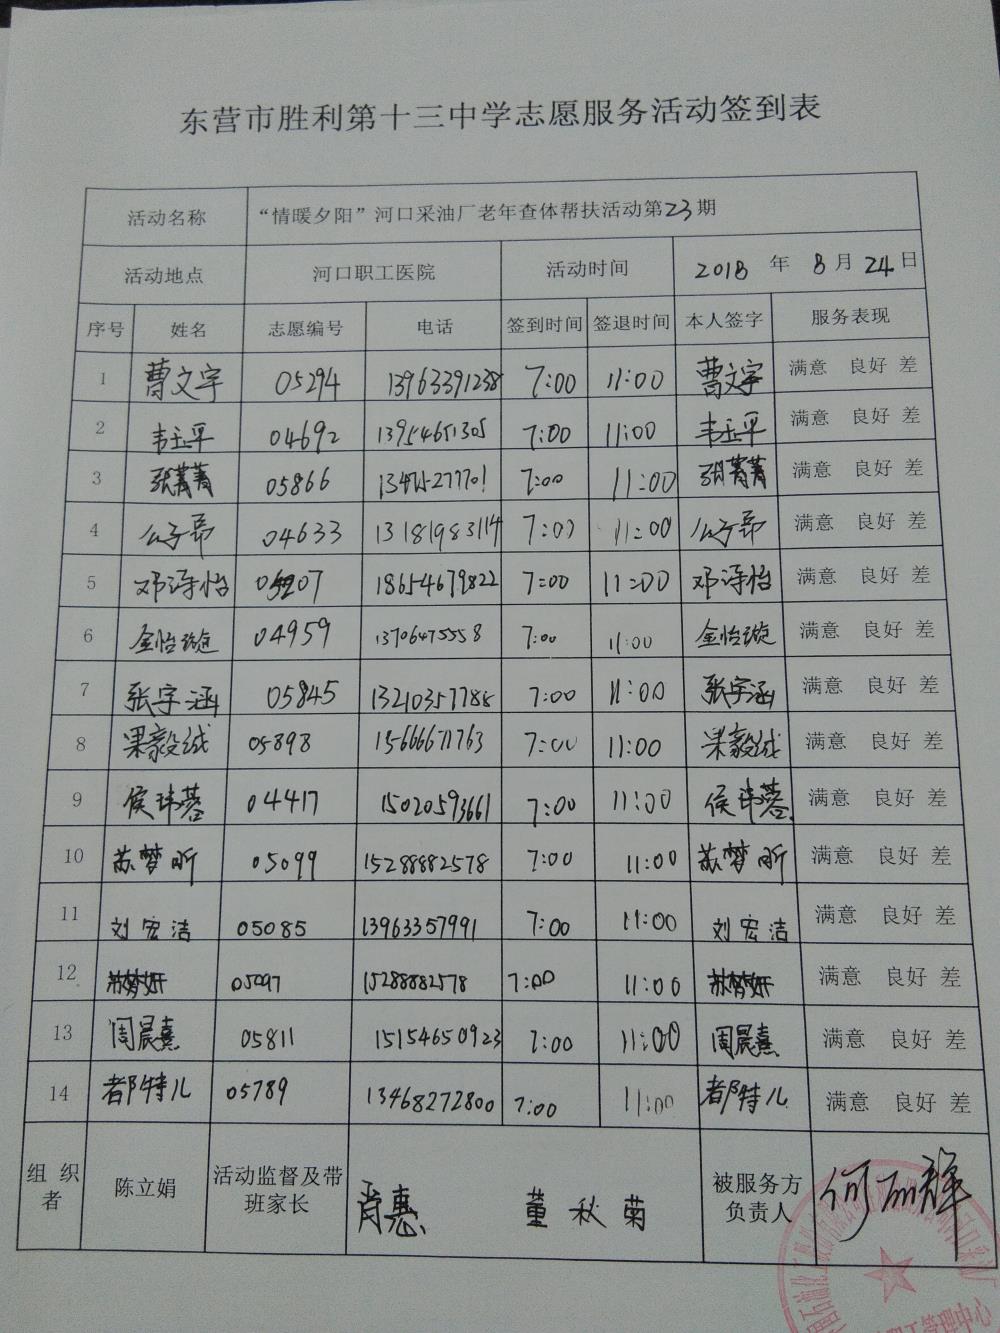 东营市胜利第十三中学志愿服务活动签到表
活动名称 “情暖夕阳”河口采油厂老年查体帮扶活动第23期
活动地点 河口职工医院 活动时间 2018 年 8 月 24 日
序号 姓名 志愿编号 电话 签到时间 签退时间 本人签字 服务表现
1 曹文宇 05294 13963391238 7:00 11:00 曹文宇 满意 良好 差
2 韦玉平 04692 13954651305 7:00 11:00 韦玉平 满意 良好 差
3 张菁菁 05866 13475277701 7:00 11:00 张菁菁 满意 良好 差
4 公子昂 04633 13181983114 7:00 11:00 公子昂 满意 良好 差
5 邓诗怡 18654679822 7:00 11:00 邓诗怡 满意 良好 差
6 金怡璇 04959 13706475558 7:00 11:00 金怡璇 满意 良好 差
7 张宇涵 05845 13210357788 7:00 11:00 张宇涵 满意 良好 差
8 果毅诚 05898 15666671763 7:00 11:00 果毅诚 满意 良好 差
9 侯玮蓉 04417 15020593661 7:00 11:00 侯玮蓉 满意 良好 差
10 苏梦昕 05099 15288882578 7:00 11:00 苏梦昕 满意 良好 差
11 刘宏洁 05085 13963357991 7:00 11:00 刘宏洁 满意 良好 差
12 苏梦妍 05097 15288882578 7:00 11:00 苏梦妍 满意 良好 差
13 周晨熹 05811 15154650923 7:00 11:00 周晨熹 满意 良好 差
14 都特儿 05789 13468272800 7:00 11:00 都特儿 满意 良好 差
组织者 陈立娟 活动监督及带班家长 肖惠 董秋菊 被服务方负责人